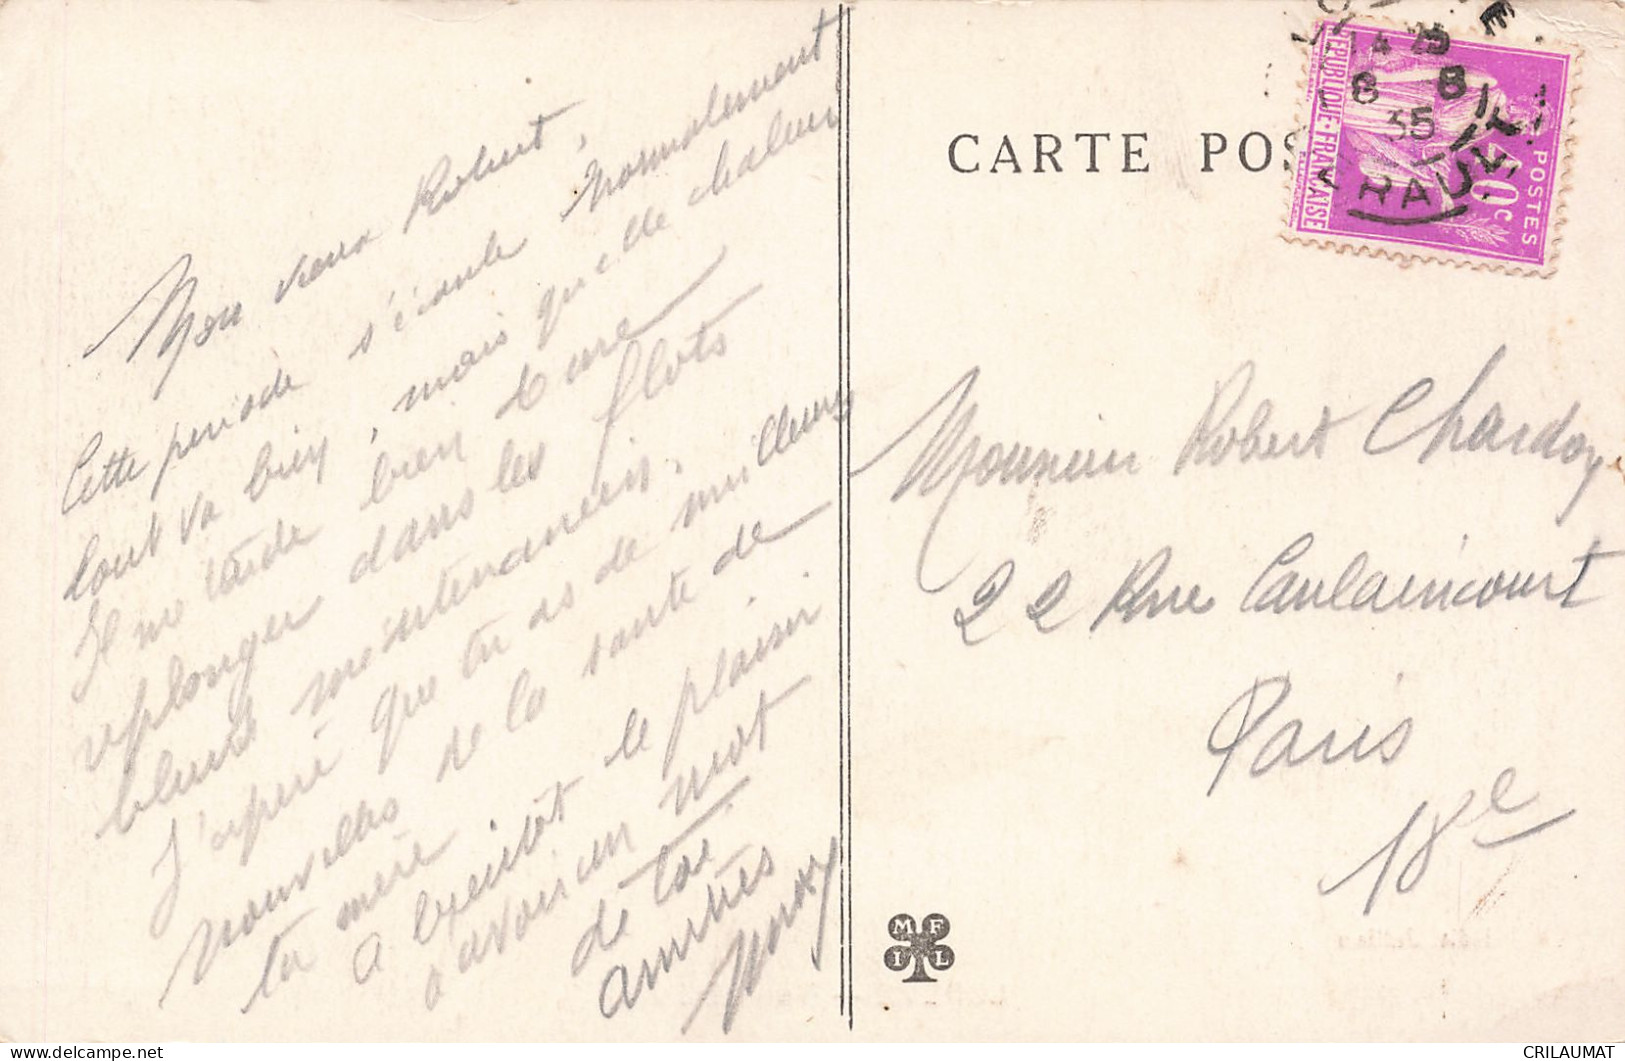 Mon vieux Robert,
Cette période s'écoule normalement
tout va bien, mais quelle chaleur
Il me tarde bien de me
replonger dans les flots
bleus méditerranéens.
J'espère que tu as de meilleures
nouvelles de la santé de
ta mère
A bientôt le plaisir
d'avoir un mot
de toi.
amitiés
CARTE POS
REPUBLIQUE·FRANÇAISE
POSTES
40c
14 25
8 8
35
HERAULT
Monsieur Robert Chardoy
22 Rue Caulaincourt
Paris
18e
M F
I L
CRILAUMAT